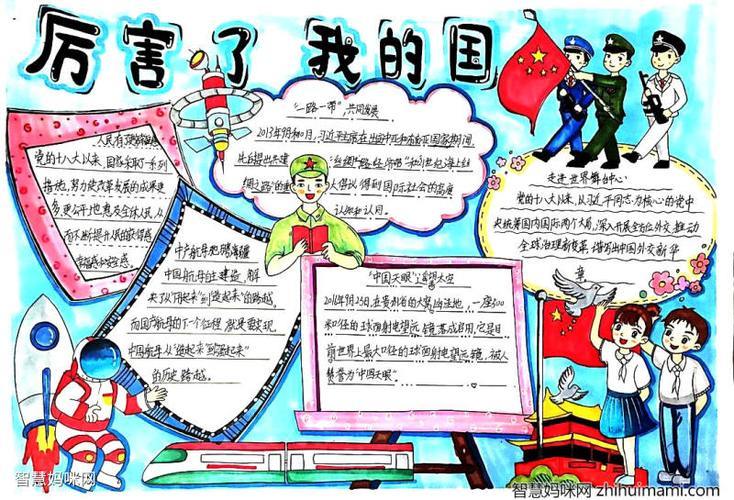 厉害了 我的国
人民有获得感
党的十八大以来,国家采取了一系列
措施,努力使改革发展的成果更
多更公平地惠及全体人民,从
而不断提升人民的获得感
幸福感和安全感
中产航母把脚海疆
中国航母的建造,解
决了从"无起来"到"造起来"的跨越,
而国产航母的下一个征程,就是要实现
中国航母从"造起来"到"强起来"
的历史跨越。
"一路一带",共同发展
2013年9月和10月,习近平主席在出访中亚和东南亚国家期间
先后提出共建
大倡议,得到国际社会的高度
认知和认同。
"中国天眼"遥望太空
2016年9月25日,在贵州省的大窝凼洼地,一座500
米口径的球面射电望远镜落成启用,它是目
前世界上最大口径的球面射电望远镜,被人
赞誉为"中国天眼"。
走进世界舞台中心
党的十八大来,以习近平同志为核心的党中
央统筹国内国际两个大局,深入开展全方位外交,推动
全球治理新变革,谱写出中国外交新华
章
智慧妈咪网
智慧妈咪网 zhihuimami.com